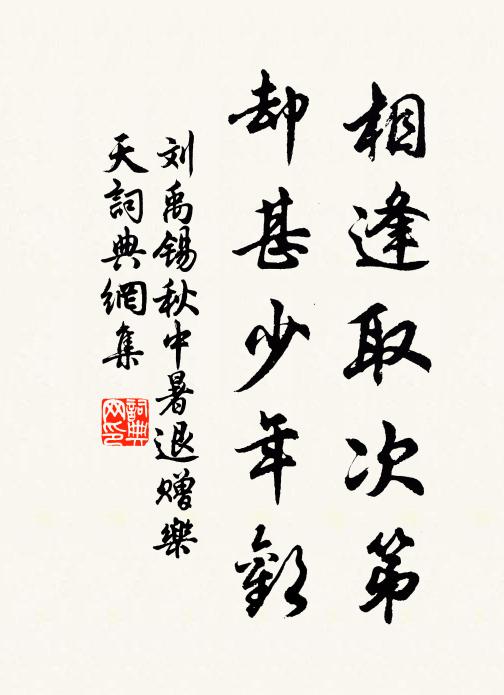 相逢取次第
却甚少年歡
刘禹锡秋中暑退赠樂
天詞典網集
詞典网印